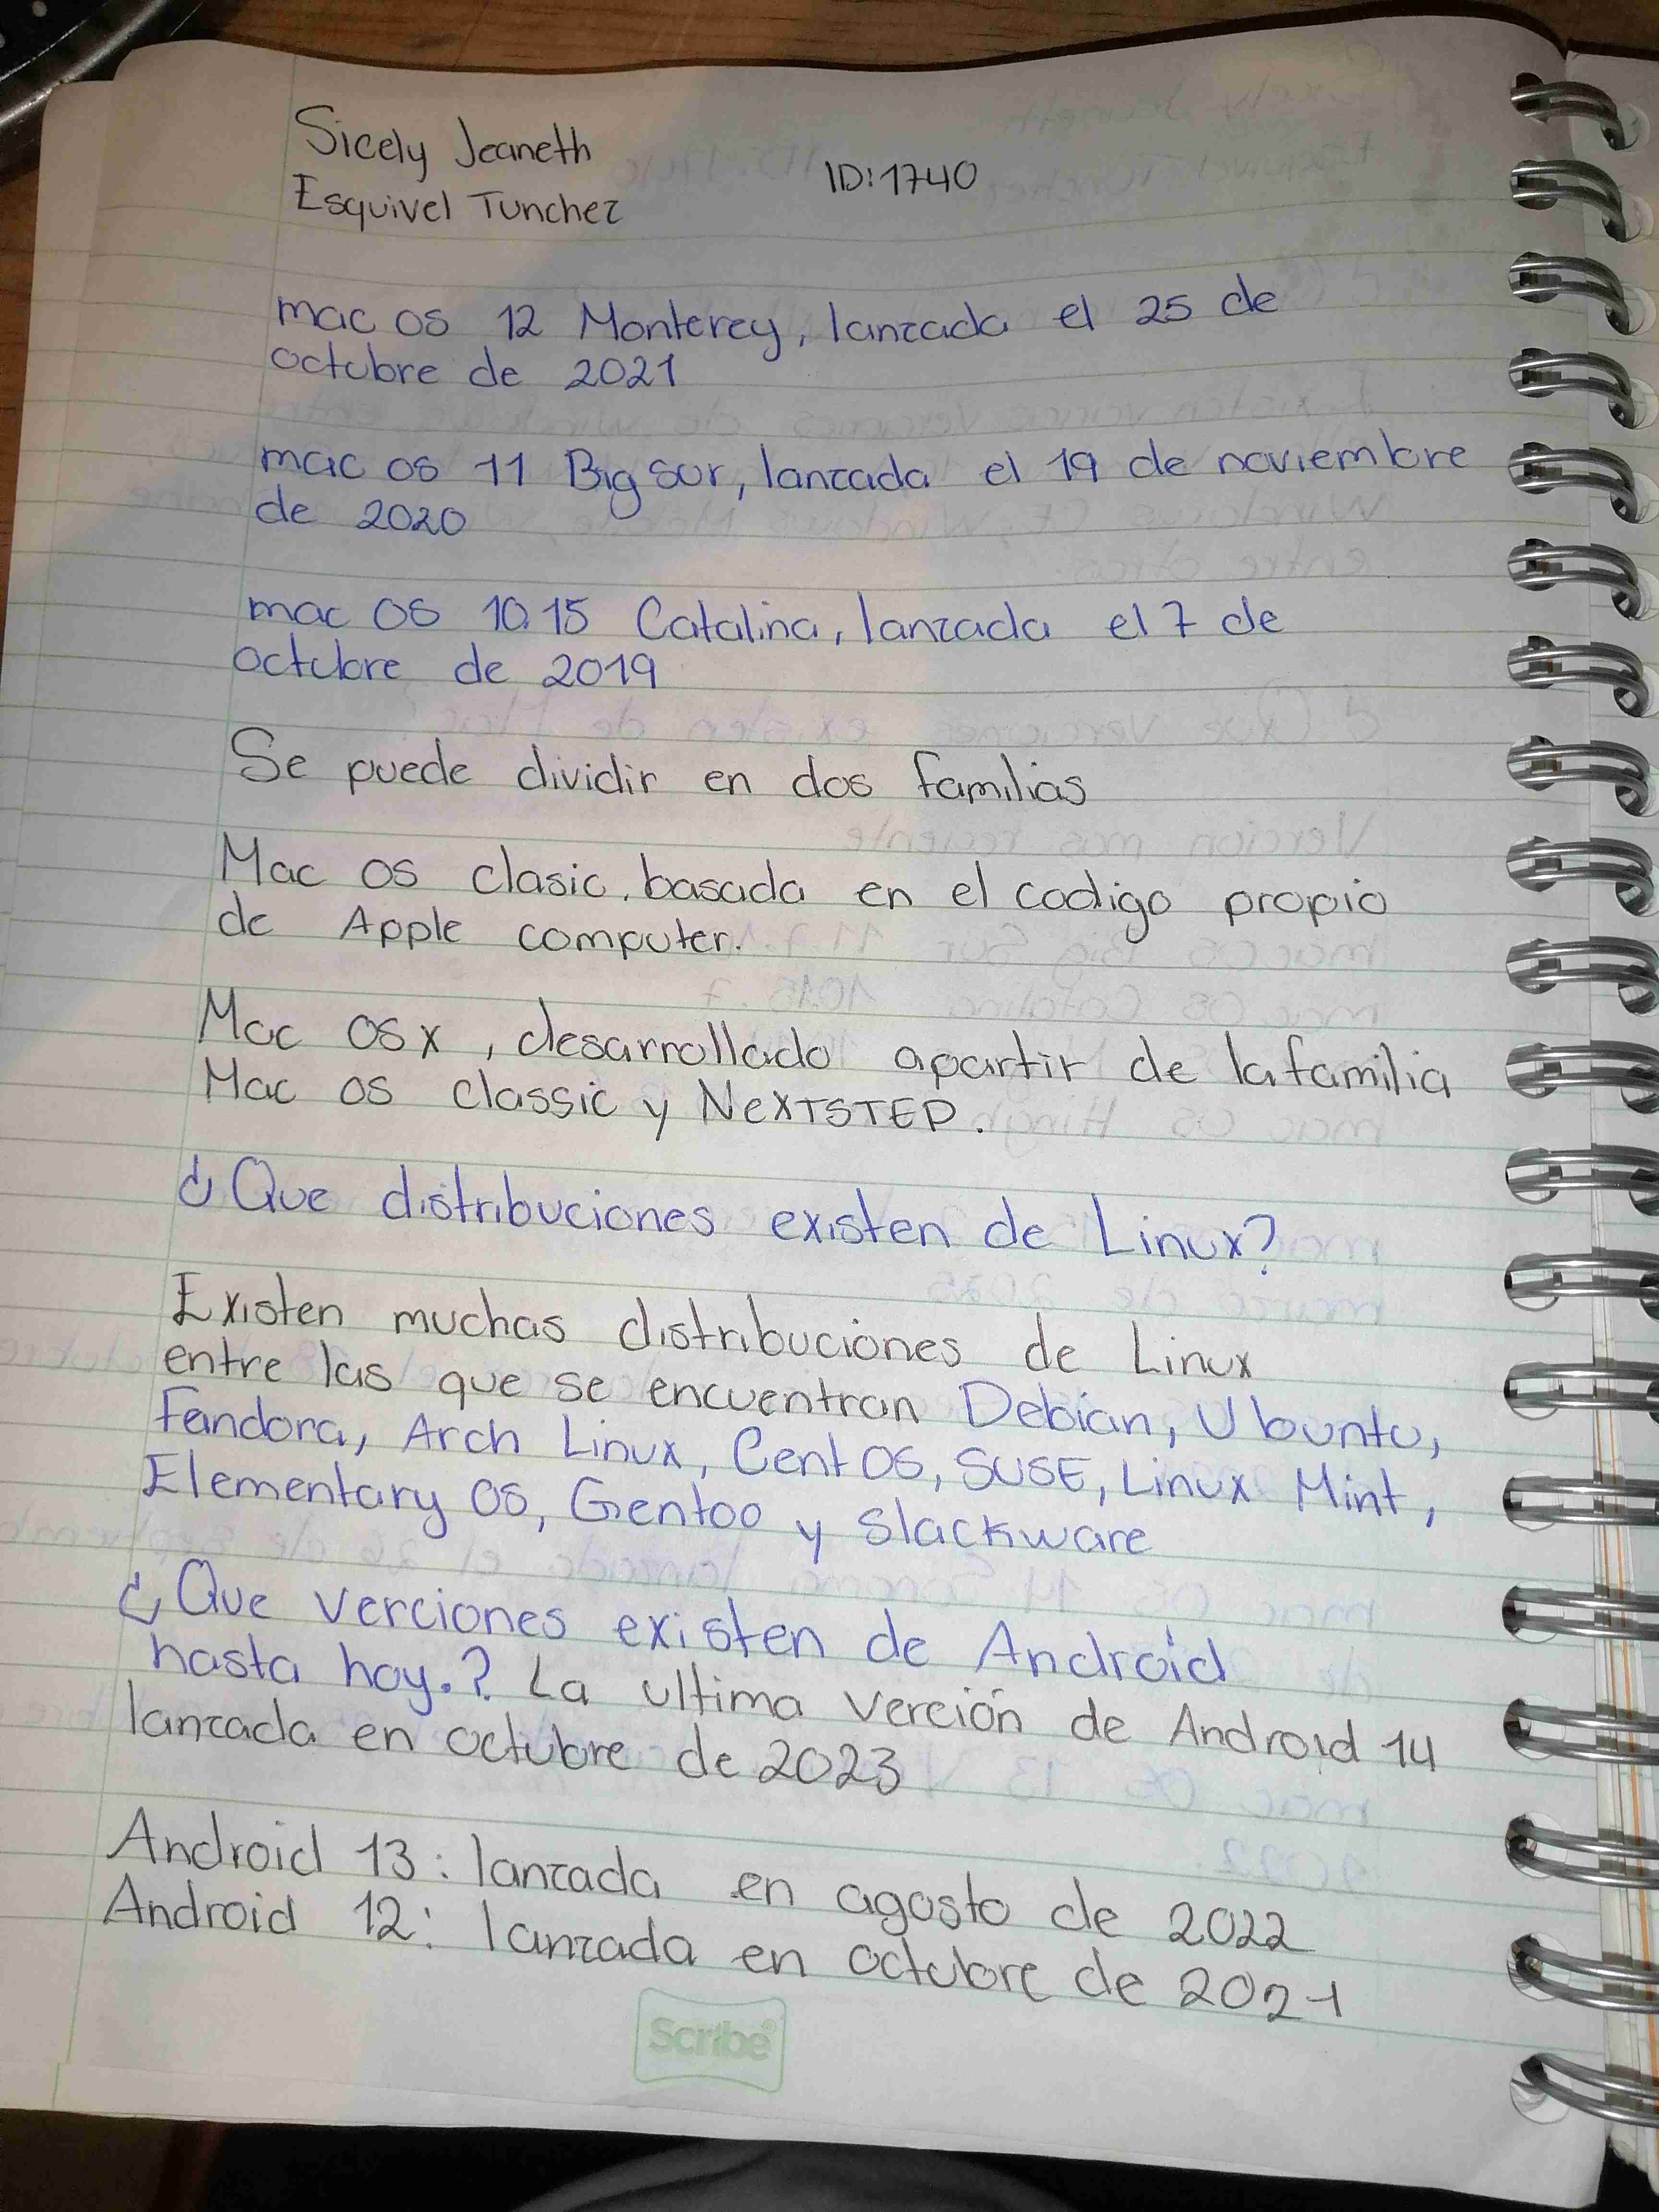 Sicely Jeaneth
Esquivel Tunchez
ID:1740
mac os 12 Monterey, lanzada el 25 de
octubre de 2021
mac os 11 Big sur, lanzada el 19 de noviembre
de 2020
mac OS 10.15 Catalina, lanzada el 7 de
octubre de 2019
Se puede dividir en dos familias
Mac OS clasic, basada en el codigo propio
de Apple computer.
Mac OSX, desarrollado apartir de la familia
Mac OS classic y NeXTSTEP.
¿Que distribuciones existen de Linux?
Existen muchas distribuciones de Linux
entre las que se encuentran Debian, Ubuntu,
Fandora, Arch Linux, Cent OS, SUSE, Linux Mint,
Elementary OS, Gentoo y Slackware
¿Que verciones existen de Android
hasta hoy.? La ultima verción de Android 14
lanzada en octubre de 2023
Android 13: lanzada en agosto de 2022
Android 12: lanzada en octubre de 2021
Scribe